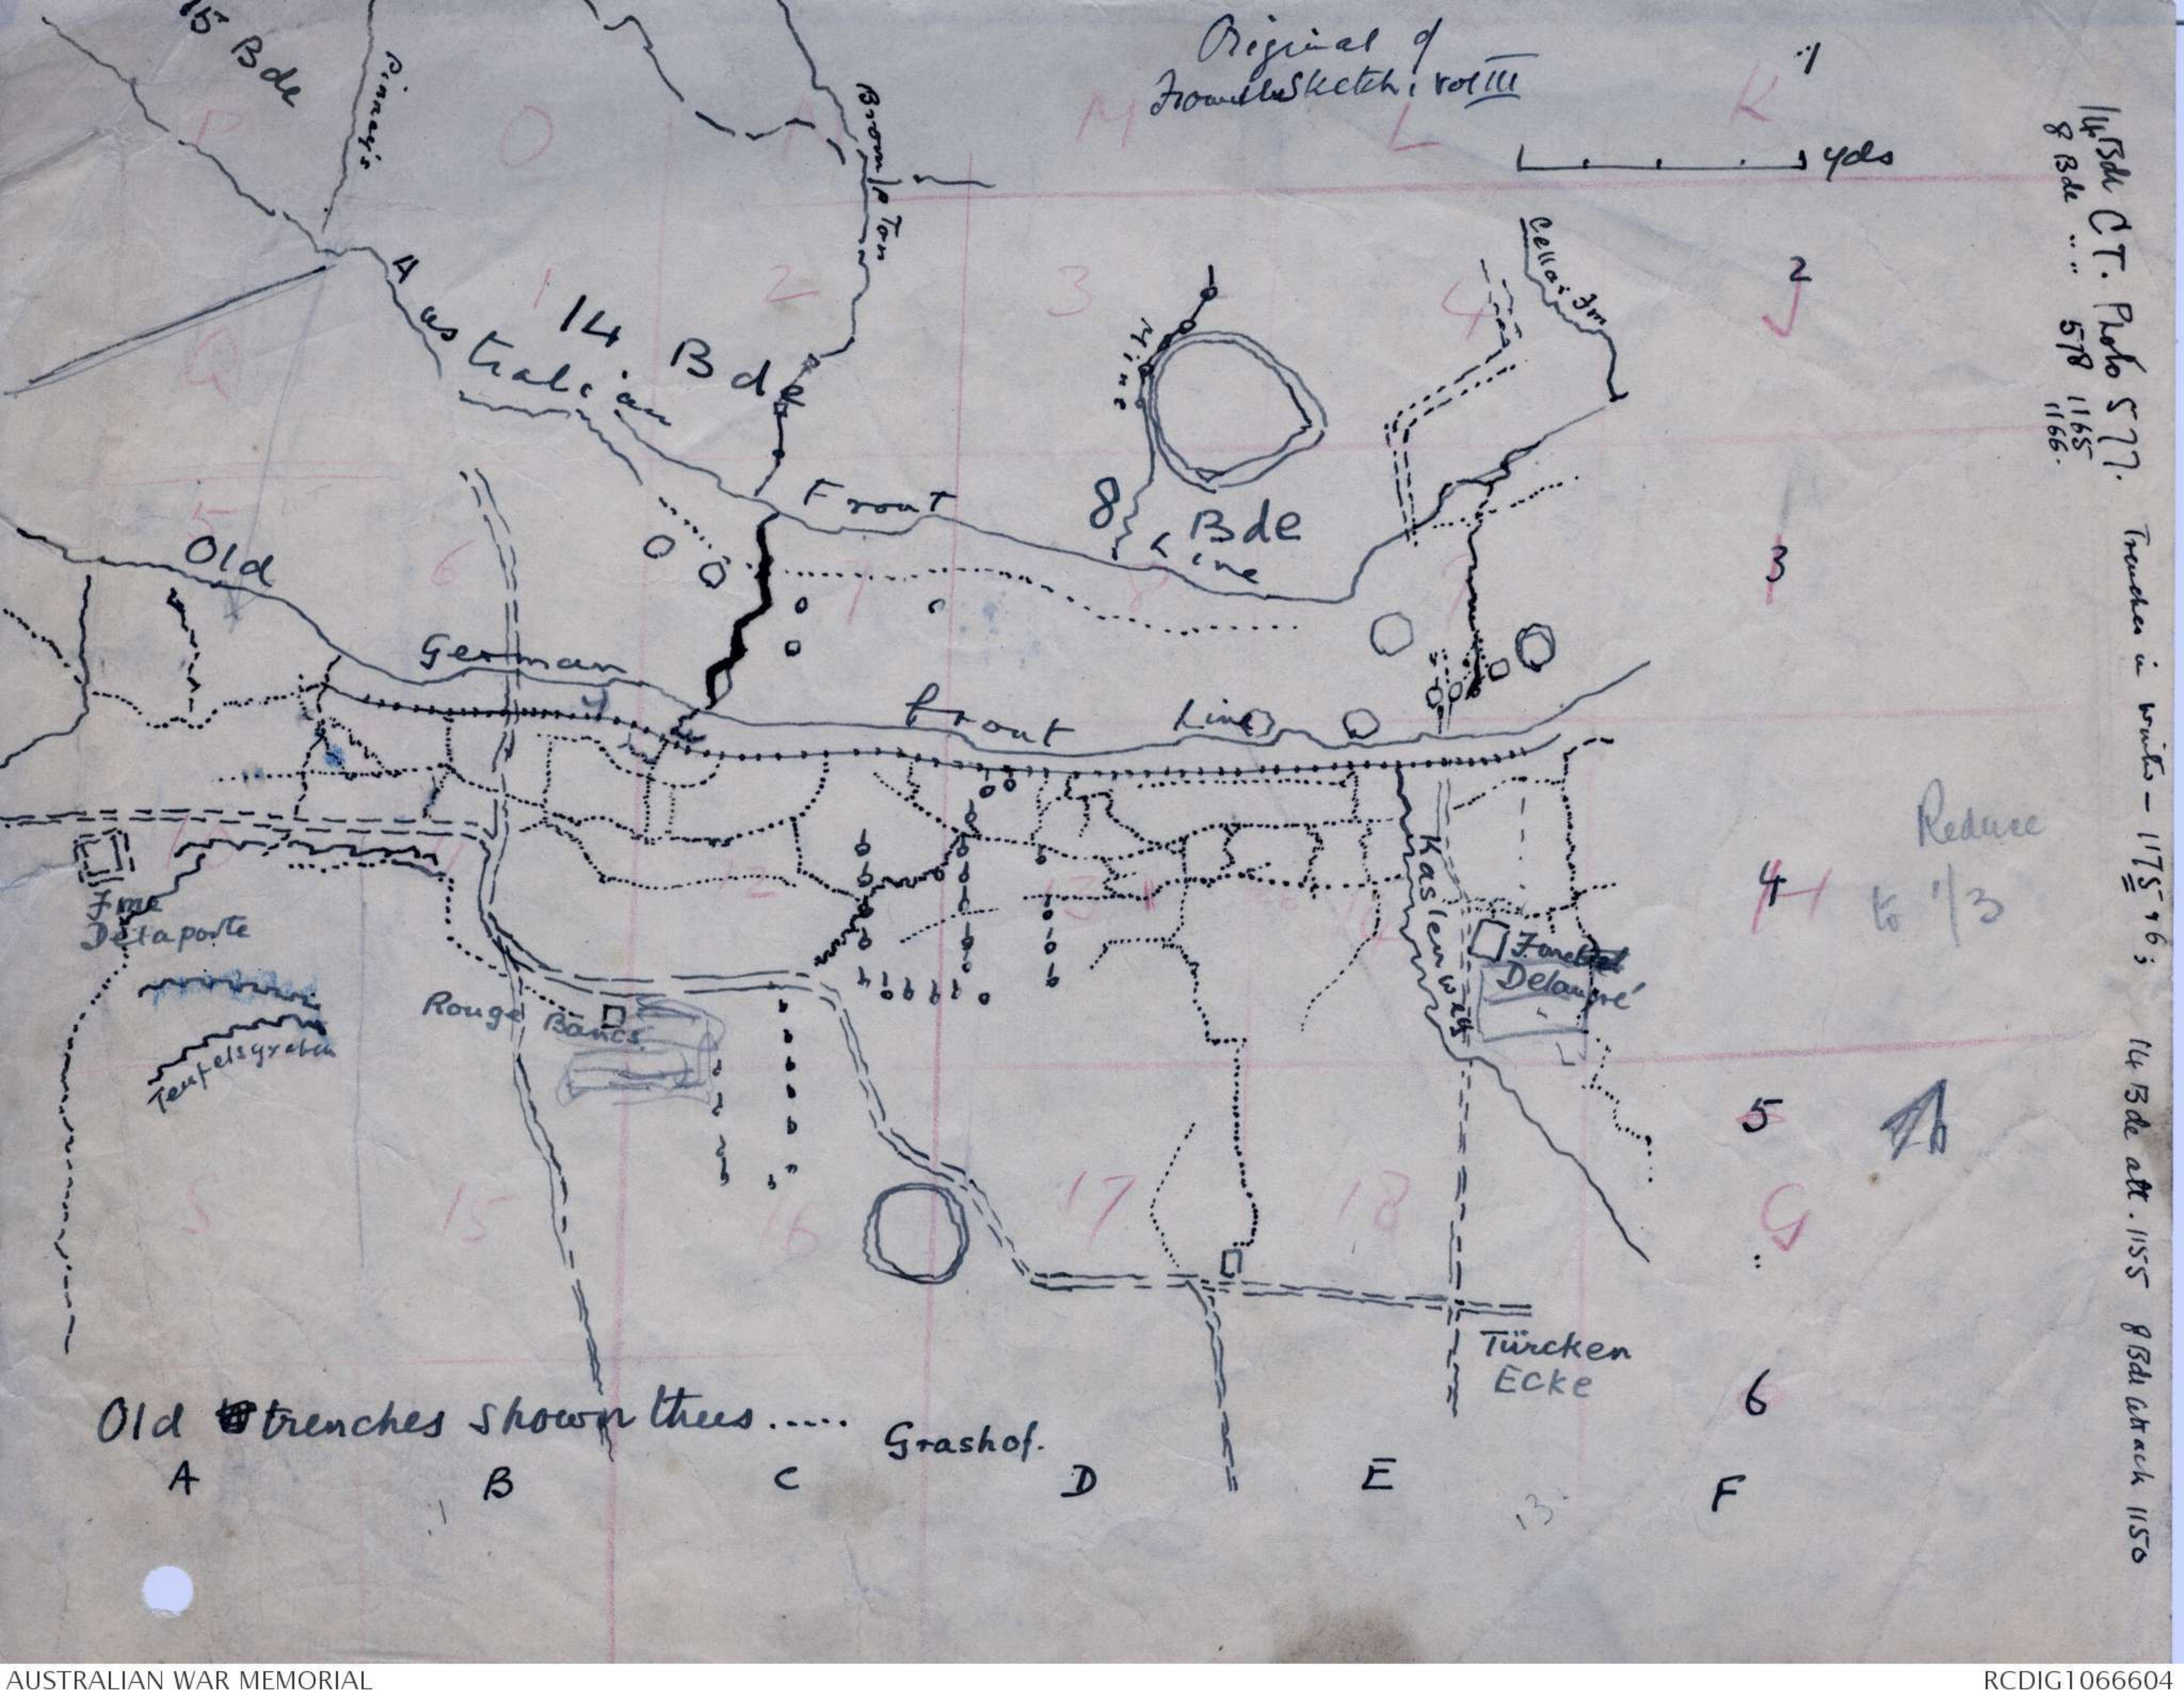 Original of
Fromelles Sketch, vol III
1
15 Bde
Pinney's
Brompton
P
O
M
L
K
yds
Cellar Fm
2
J
1
2
3
4
Q
14 Bde
Australian
Front
Line
Mine
8 Bde
3
5
6
7
8
Old
German
Front
Line
Reduce
to 1/3
4
H
10
12
13
Fme
Delaporte
Kastenweg
Delangré
Rouge Bancs.
Teufelsgraben
5
G
S
15
16
17
18
Türcken
Ecke
6
Old trenches shown thus.....
Grashof.
A
B
C
D
E
F
13
14 Bde CT. Photo 577.
8 Bde " " 578 1165
1166.
Trenches in winter - 1175 + 6;
14 Bde att. 1155 8 Bde attack 1150
AUSTRALIAN WAR MEMORIAL
RCDIG1066604